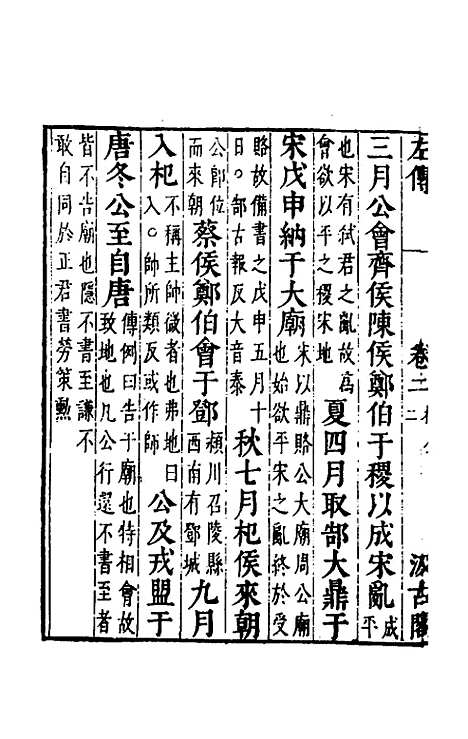 左傳 卷二 二 汲古閣
三月公會齊侯陳侯鄭伯于稷以成宋亂 成平
也宋有弒君之亂故爲會欲以平之稷宋地 夏四月取郜大鼎于
宋戊申納于大廟 宋以鼎賂公大廟周公廟也始欲平宋之亂終於受
賂故備書之戊申五月十日○郜古報反大音泰 秋七月杞侯來朝
公即位而來朝 蔡侯鄭伯會于鄧 潁川召陵縣西南有鄧城 九月
入杞 不稱主師微者也弗地曰入○師所類反或作師 公及戎盟于
唐冬公至自唐 傳例曰告于廟也特相會故致地也凡公行還不書至者
皆不告廟也隱不書至謙不敢自同於正君書勞策勲